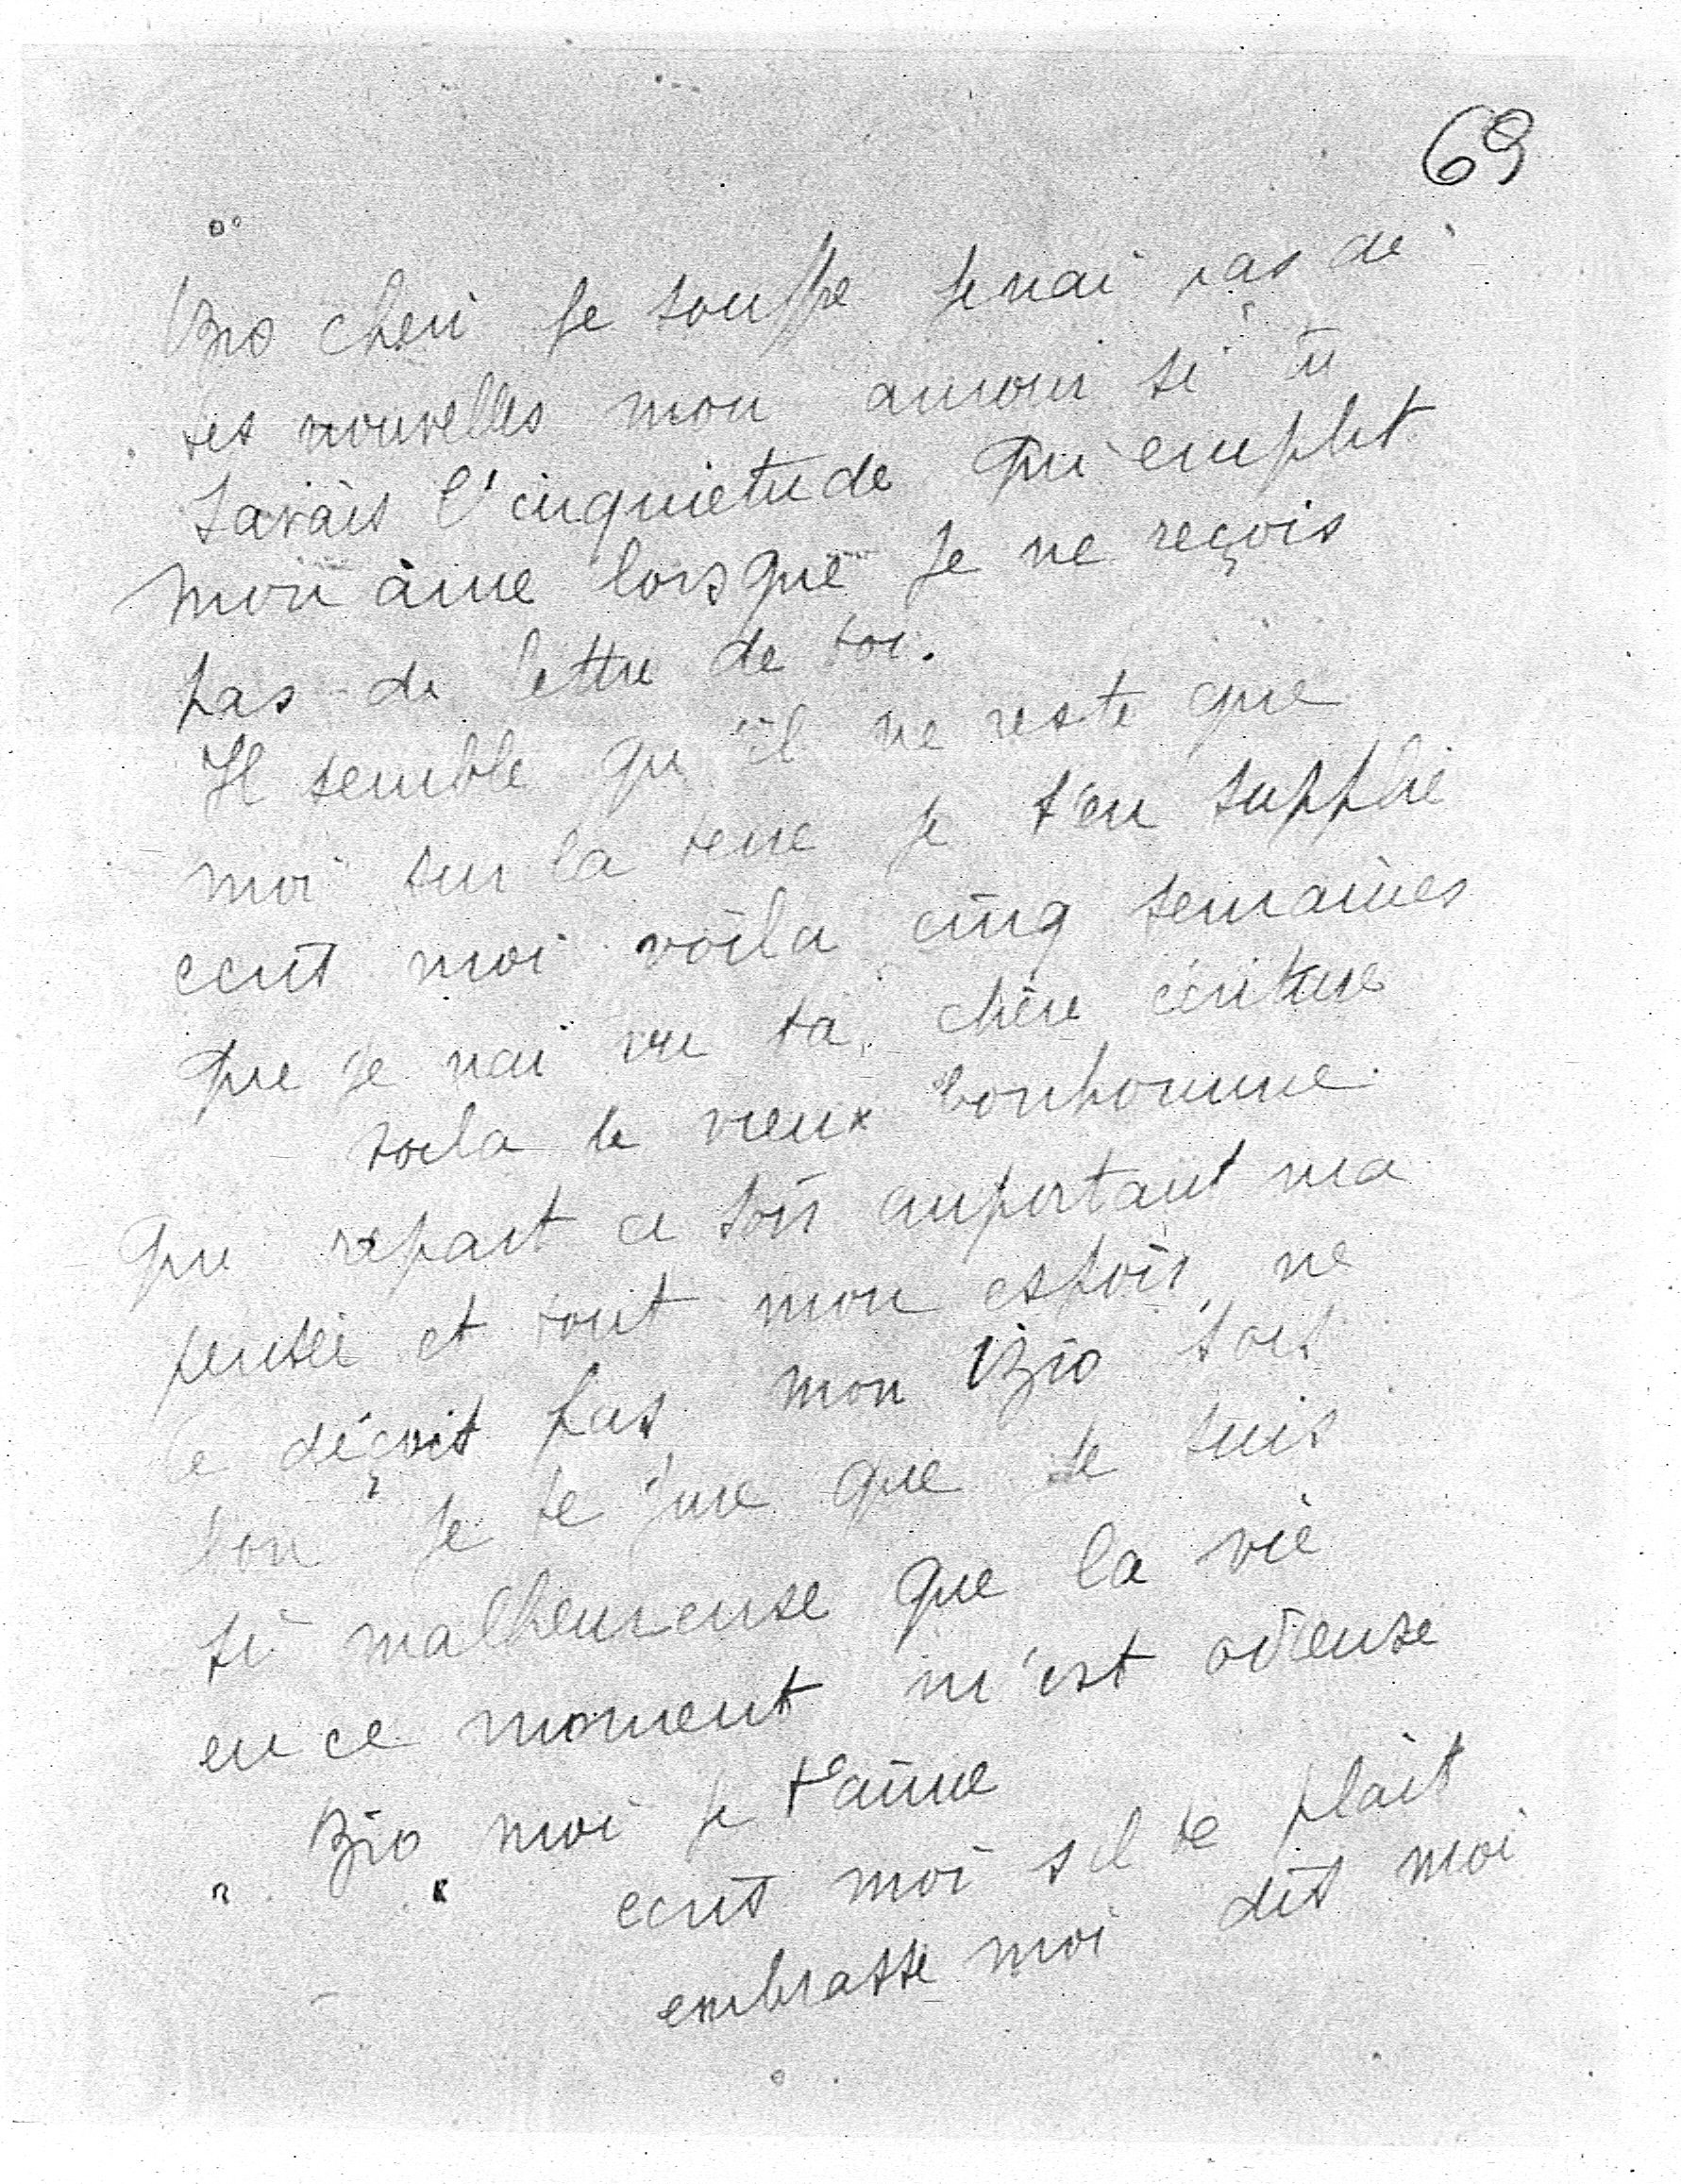 69
Bzo cheri je souffre je nai pas de
tes nouvelles mon amour si tu
savais l'inquietude qui emplit
mon âme lorsque je ne reçois
pas de lettre de toi.
Il semble qu'il ne reste que
moi sur la terre je t'en supplie
ecrit moi voila cinq semaines
que je nai vu ta chère écriture
voila le vieux bonhomme
qui repart ce soir emportant ma
pensée et tout mon espoir ne
le déçoit pas mon Bzo sois
bon je te jure que je suis
si malheureuse que la vie
en ce moment m'est odieuse
Bzo moi je t'aime
ecrit moi s il te plait
embrasse moi dit moi